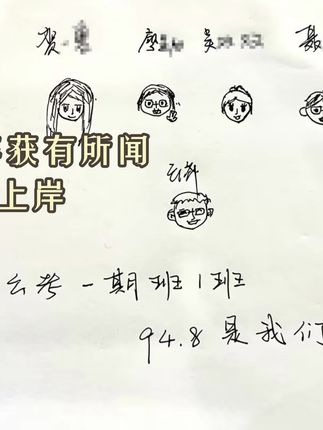 贺
廖 吴 聂
获有所闻
上岸
云考
云考一期班1班
94.8是我们